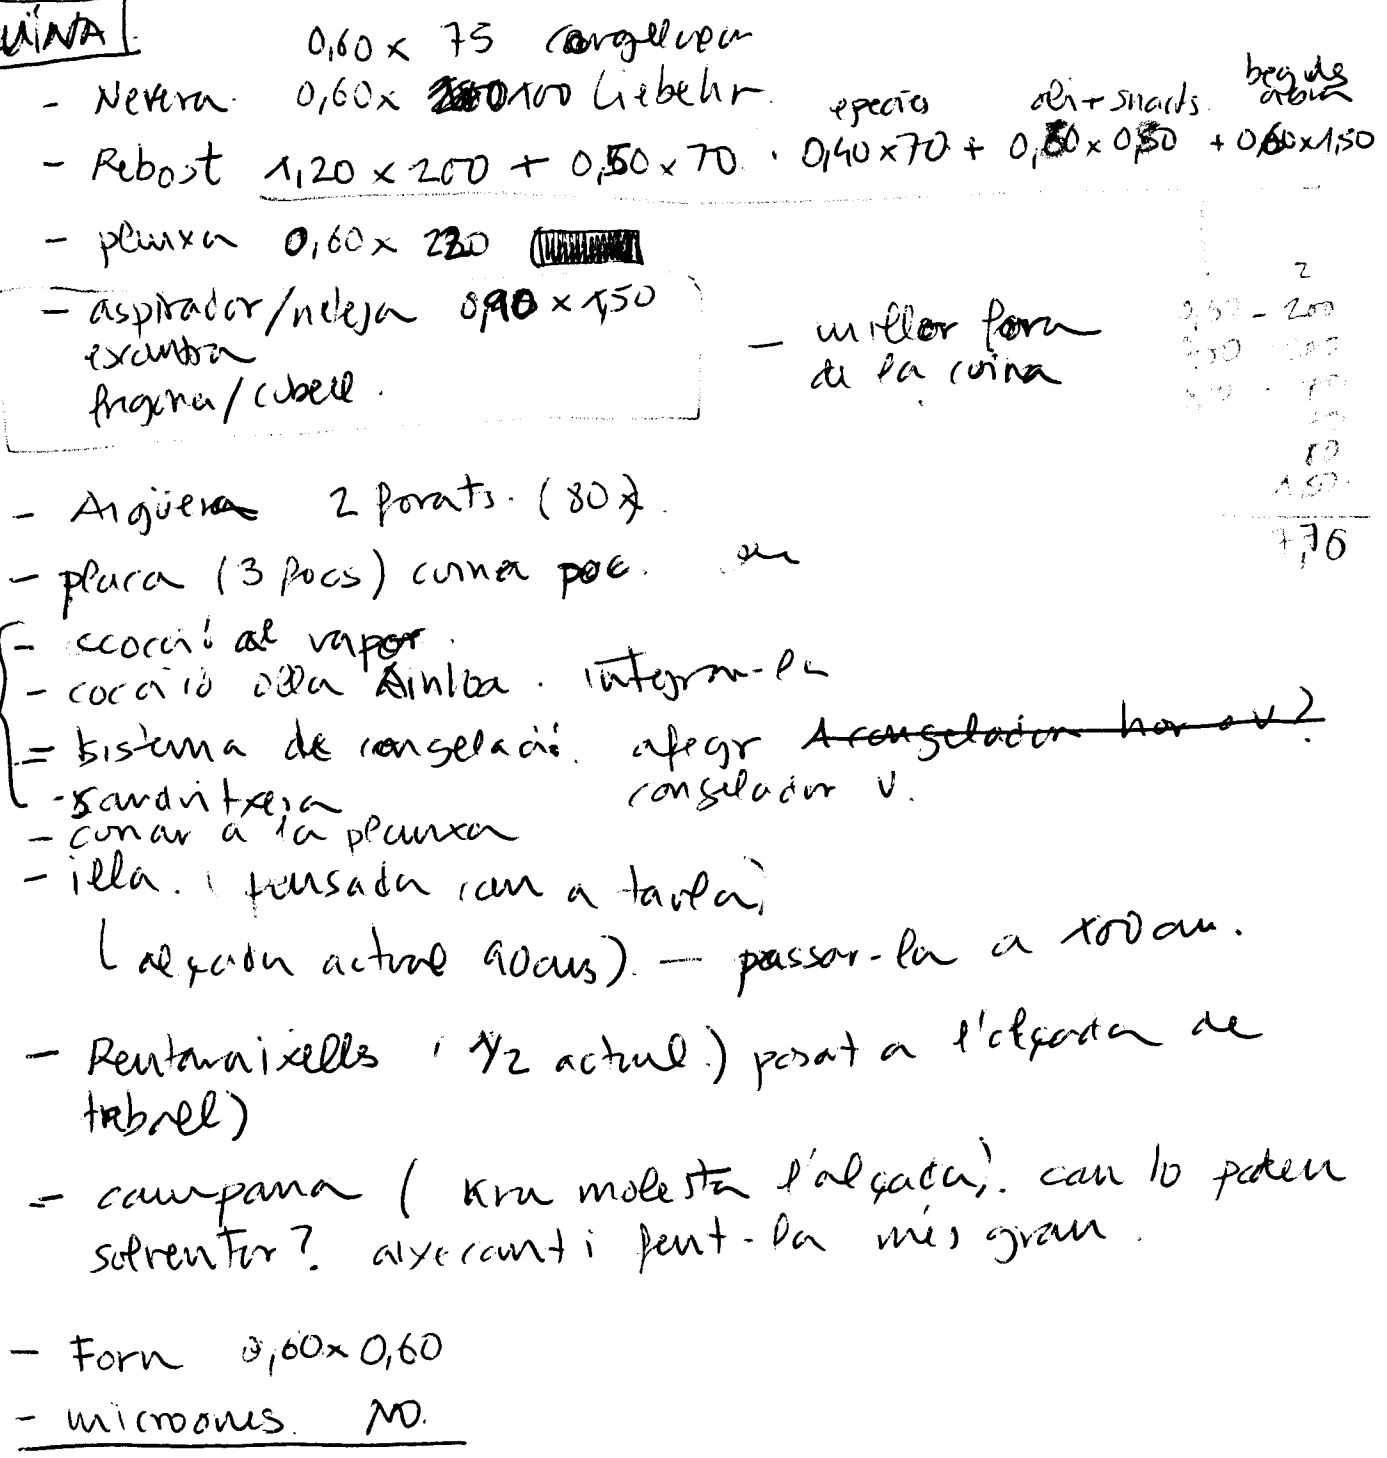 UÏNA
0,60 x 75 congelador
- Nevera 0,60 x 100 Liebehr.
especies oli + snacks. beguda
- Rebost 1,20 x 200 + 0,50 x 70 . 0,40 x 70 + 0,80 x 0,80 + 0,60 x 1,50
- planxa 0,60 x 230
- aspirador/neteja 0,90 x 1,50
escombra
fregona/cubell.
- millor fora
de la cuina
2
200
70
80
1,50
7,76
- Aigüera 2 forats. (80 x
- placa (3 focs) cuinen poc.
- cocció al vapor.
- cocció olla . integrar-la
= sistema de congelació. afegir 1 congelador hor o v?
congelador V.
- sandvitxera
- cuinar a la planxa
- illa. (pensada com a taula)
(alçada actual 90cms). - passar-la a 100 cm.
- Rentavaixells (1/2 actual) posat a l'alçada de
treball)
= campana ( molesta l'alçada). com lo poden
solventar? aixecant i fent-la més gran.
- Forn 0,60 x 0,60
- microones. NO.